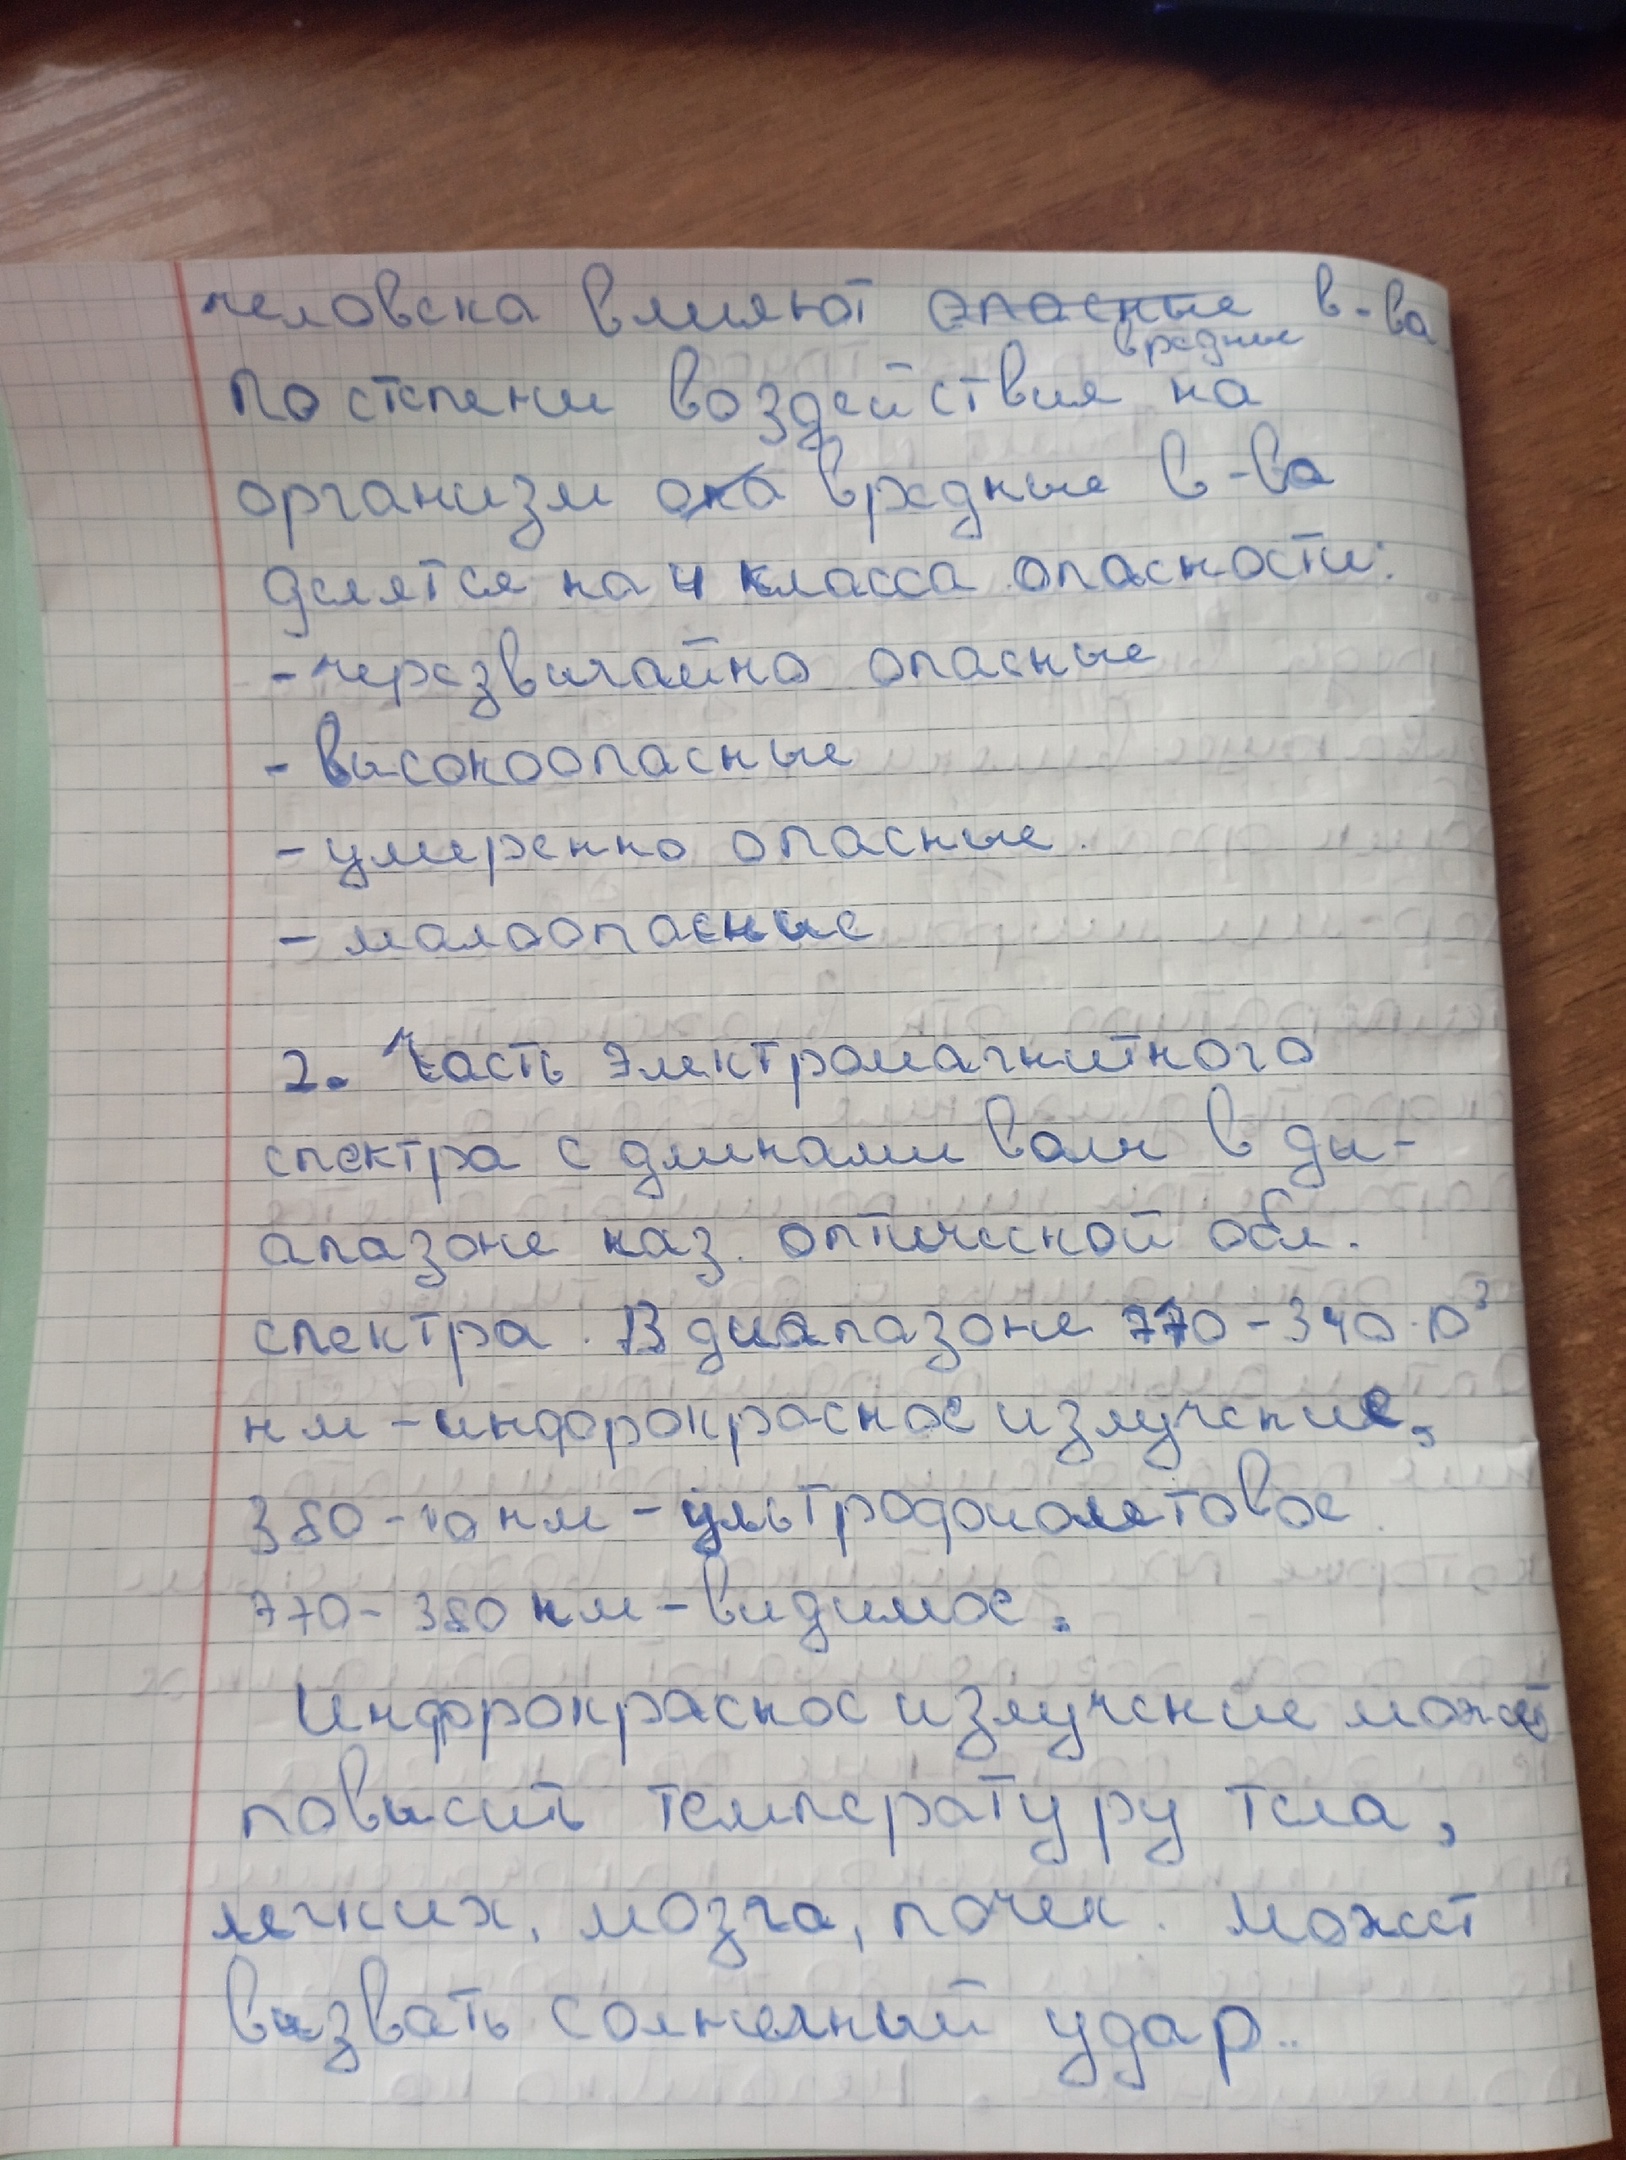 человека влияют опасные в-ва.
вредные
По степени воздействия на
организм она вредные в-ва
делятся на 4 класса опасности:
- черезвычайно опасные
- высокоопасные
- умеренно опасные.
- малоопасные
2. Часть электромагнитного
спектра с длинами волн в ди-
апазоне наз. оптической обл.
спектра. В диапазоне 770-340·10³
нм - инфорокрасное излучение,
380-10 нм - ультрофоиолетовое
770-380 нм - видимое.
Инфрокрасное излучение может
повысить температуру тела,
легких, мозга, почек. может
вызвать солнечный удар..